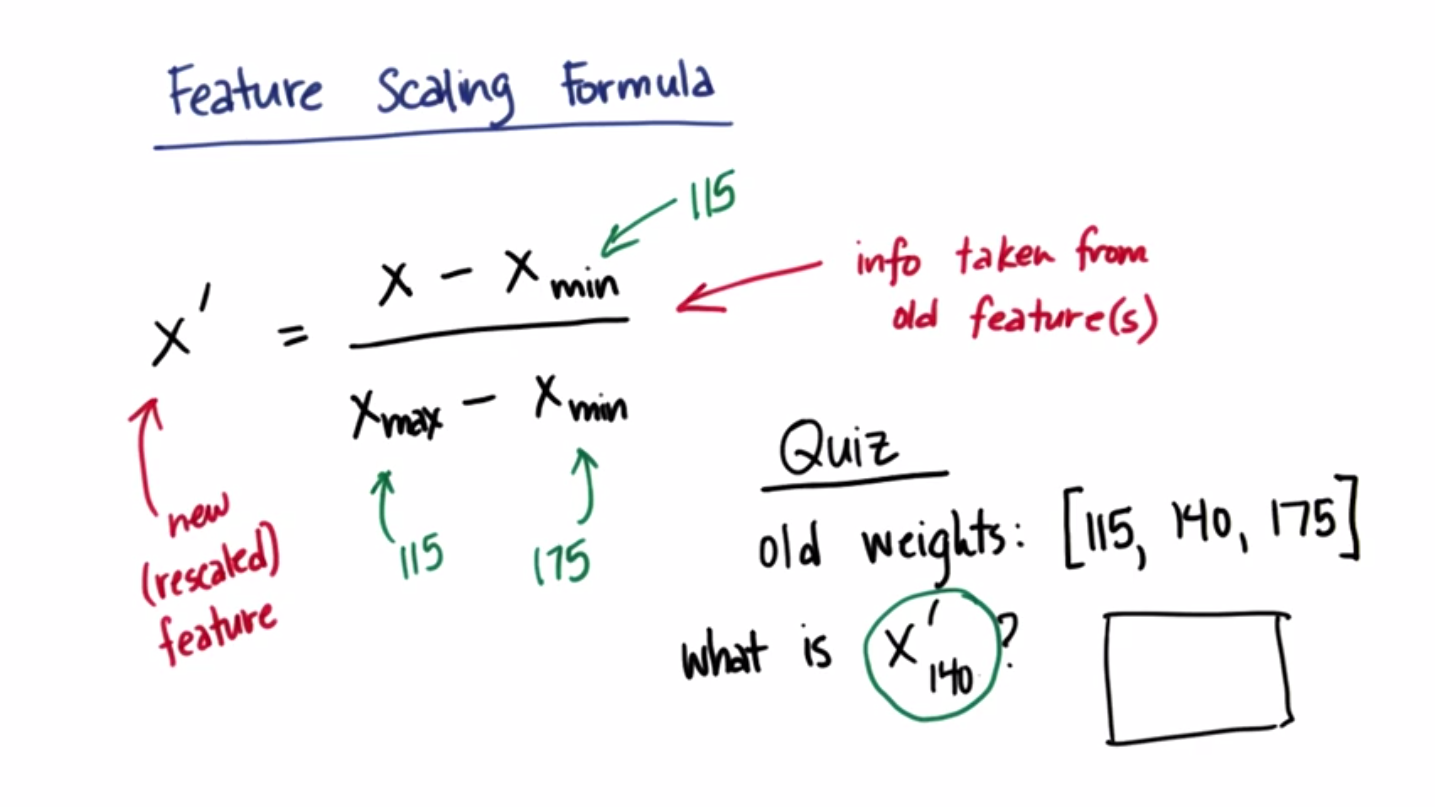 Feature Scaling Formula
115
x' = x - xmin
xmax - xmin
info taken from
old feature(s)
115
175
new
(rescaled)
feature
Quiz
old weights: [115, 140, 175]
what is x'140?